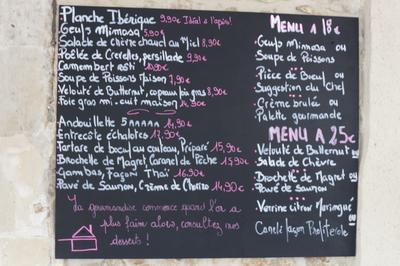 Planche Ibérique 9,90€ Idéal à l'apéro!
Oeufs Mimosa 5,90€
Salade de chèvre chaud au Miel 8,90€
Poêlée de Crevettes, persillade 9,90€
Camembert rôti 10,90€
Soupe de Poissons Maison 7,90€
Velouté de Butternut, copeaux foie gras 8,90€
Foie gras mi-cuit maison 14,90€
Andouillette 5AAAAA 14,90€
Entrecôte échalotes 17,90€
Tartare de boeuf au couteau, Préparé 15,90€
Brochelle de Magret, Caramel de Pêche 15,90€
Gambas, Façon Thaï 16,90€
Pavé de Saumon, Crème de Chorizo 14,90€
La gourmandise commence quand l'on a
plus faim alors, consultez nos
desserts !
MENU A 18€
Oeufs Mimosa ou
Soupe de Poissons
Pièce de Boeuf ou
Suggestion du Chef
Crème brulée ou
Palette gourmande
MENU A 25€
Velouté de Butternut ou
Salade de Chèvre
Brochelle de Magret ou
Pavé de Saumon
Verrine citron Meringué
ou
Canelé façon Profiterole